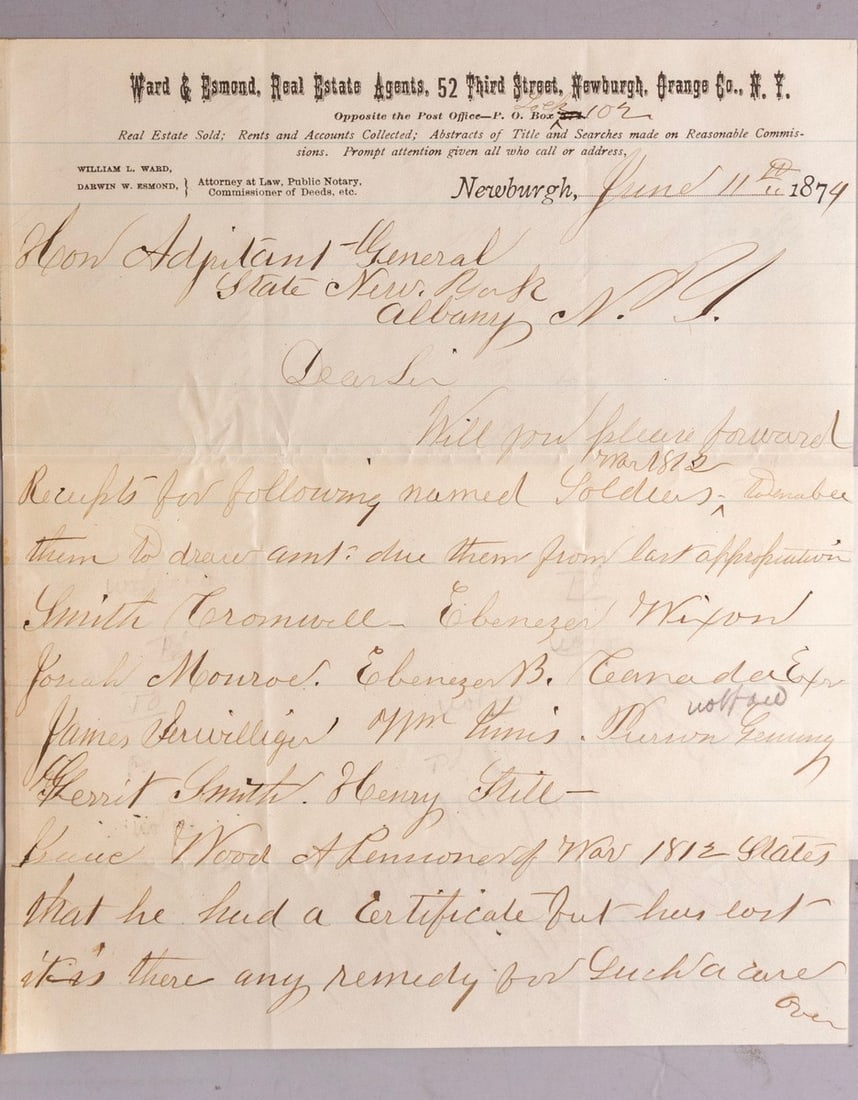 Ward & Esmond, Real Estate Agents, 52 Third Street, Newburgh, Orange Co., N. Y.
Opposite the Post Office—P. O. Box Lock 102
Real Estate Sold; Rents and Accounts Collected; Abstracts of Title and Searches made on Reasonable Commis-
sions. Prompt attention given all who call or address,
WILLIAM L. WARD,
DARWIN W. ESMOND, } Attorney at Law, Public Notary,
Commissioner of Deeds, etc.
Newburgh, June 11th 1874
Hon Adjutant-General
State New York
Albany N. Y.
Dear Sir
Will you please forward
War 1812
Receipts for following named Soldiers - to enable
them to draw amt. due them from last appropriation
Smith Cromwell - Ebenezer Wixon
Josiah Monroe. Ebenezer B. Canada Exr
not pd
James Terwilliger Wm Pierson Genung
Gerrit Smith. Henry Still -
Isaac Wood A Pensioner of War 1812 States
that he had a Certificate but has lost
it is there any remedy for such a case
over